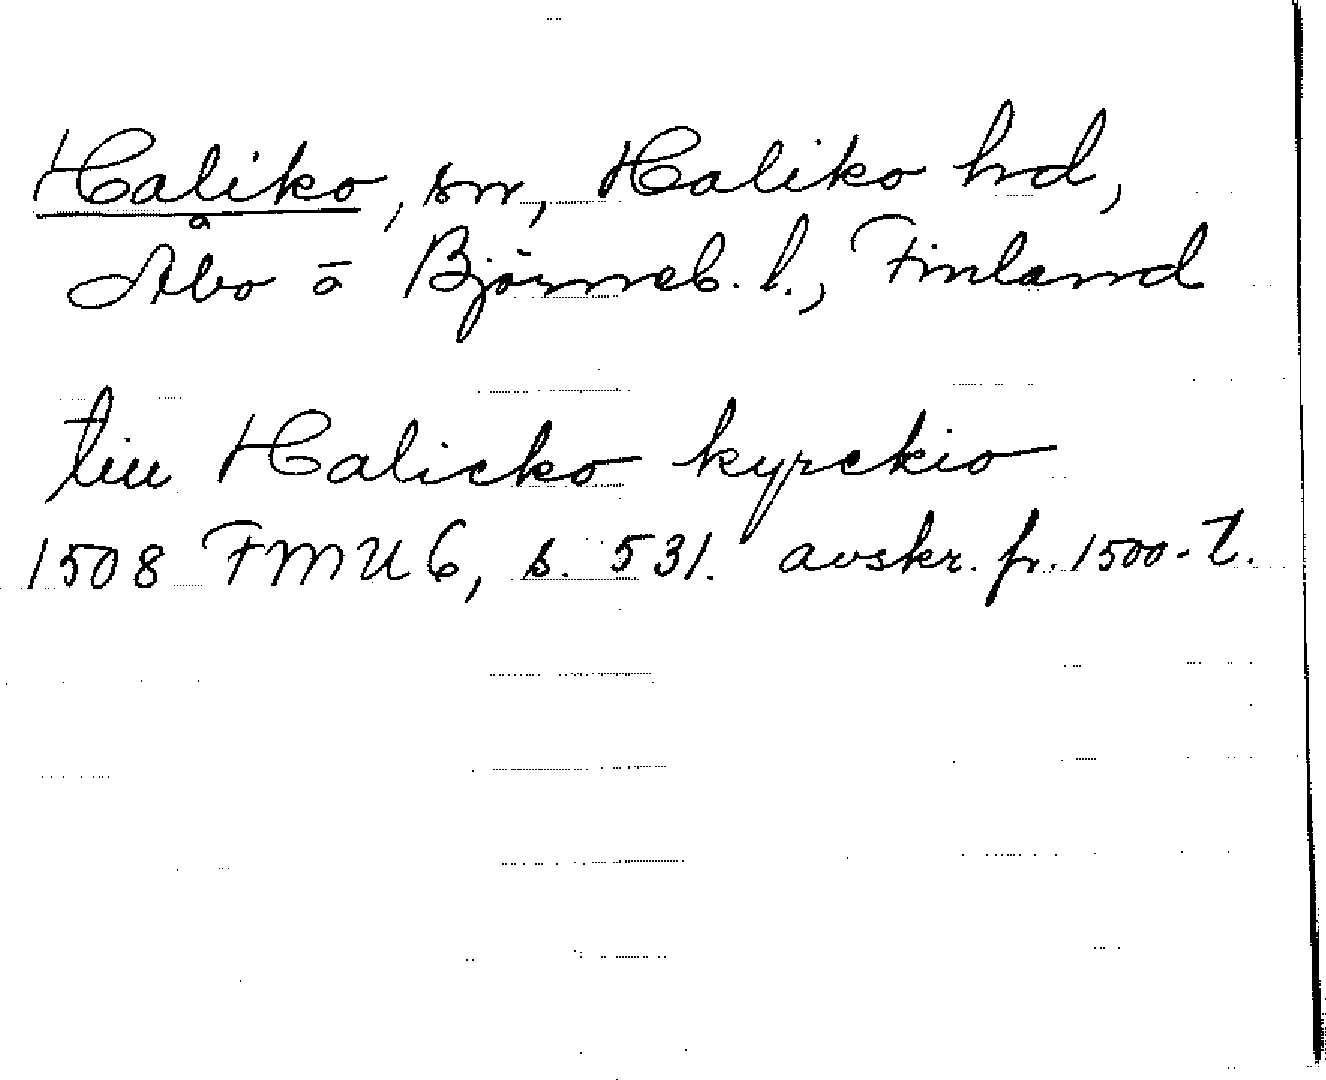 Haliko, sn, Haliko hrd,
Åbo o Björneb. l., Finland
tiu Halicko kyrckio
1508 FMU 6, s. 531. avskr. fr. 1500-t.